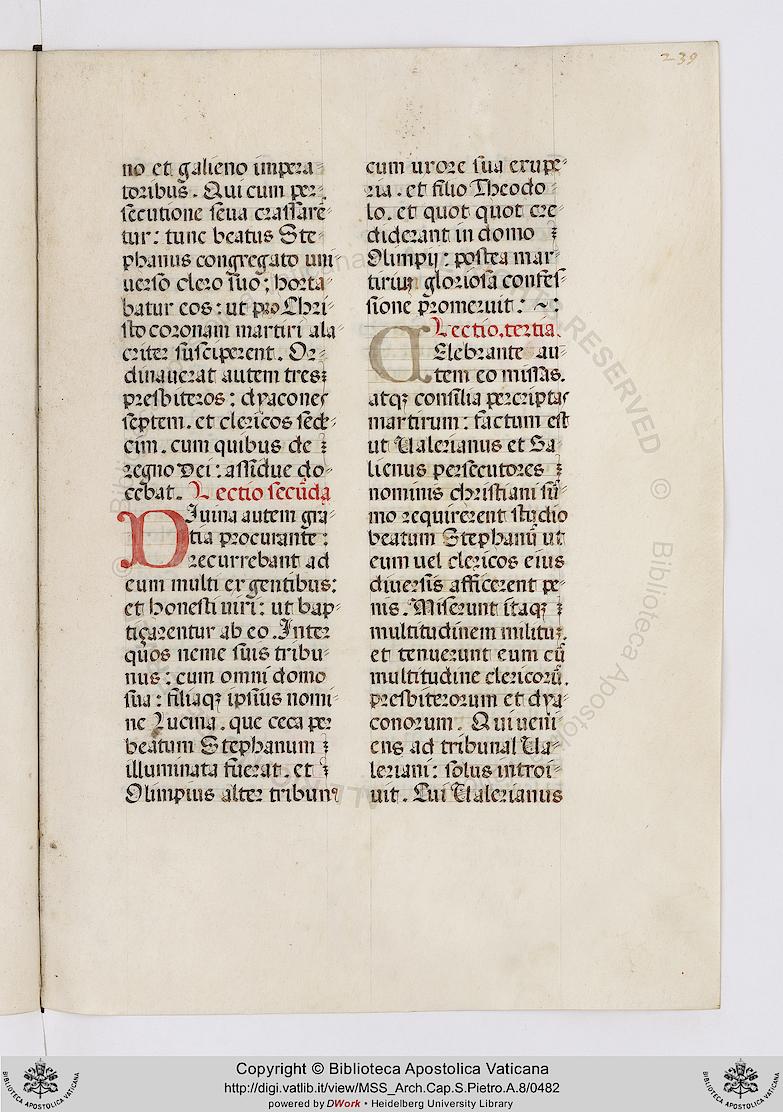 239
no et galieno impera⸗
toribus. Qui cum per⸗
secutione seua crassarē⸗
tur: tunc beatus Ste⸗
phanus congregato uni⸗
uerso clero suo; horta⸗
batur eos: ut pro Chri⸗
sto coronam martiri ala⸗
criter susciperent. Or⸗
dinauerat autem tres
presbiteros: dyacones
septem. et clericos sede⸗
cim. cum quibus de
regno Dei: assidue do⸗
cebat. Lectio secūda
Diuina autem gra⸗
tia procurante:
recurrebant ad
eum multi ex gentibus:
et honesti uiri: ut bap⸗
tiçarentur ab eo. Inter
quos neme suis tribu⸗
nus: cum omni domo
sua: filiaqꝫ ipsius nomi⸗
ne Lucina. que ceca per
beatum Stephanum
illuminata fuerat. et
Olimpius alter tribunꝰ
cum uxore sua exupe⸗
ria. et filio Theodo⸗
lo. et quot quot cre⸗
diderant in domo
Olimpij: postea mar⸗
tirium gloriosa confes⸗
sione promeruit: ~:
Lectio. tertia.
Celebrante au⸗
tem eo missas.
atqꝫ consilia percriptas
martirum: factum est
ut Ualerianus et Ga⸗
lienus persecutores
nominis christiani sū⸗
mo requirerent studio
beatum Stephanū ut
eum uel clericos eius
diuersis afficerent pe⸗
nis. Miserunt itaqꝫ
multitudinem militum.
et tenuerunt eum cū
multitudine clericorū.
presbiterorum et dya⸗
conorum. Qui ueni⸗
ens ad tribunal Ua⸗
leriani: solus introi⸗
uit. Cui Ualerianus
Copyright © Biblioteca Apostolica Vaticana
http://digi.vatlib.it/view/MSS_Arch.Cap.S.Pietro.A.8/0482
powered by DWork • Heidelberg University Library
BIBLIOTECA APOSTOLICA VATICANA
BIBLIOTECA APOSTOLICA VATICANA